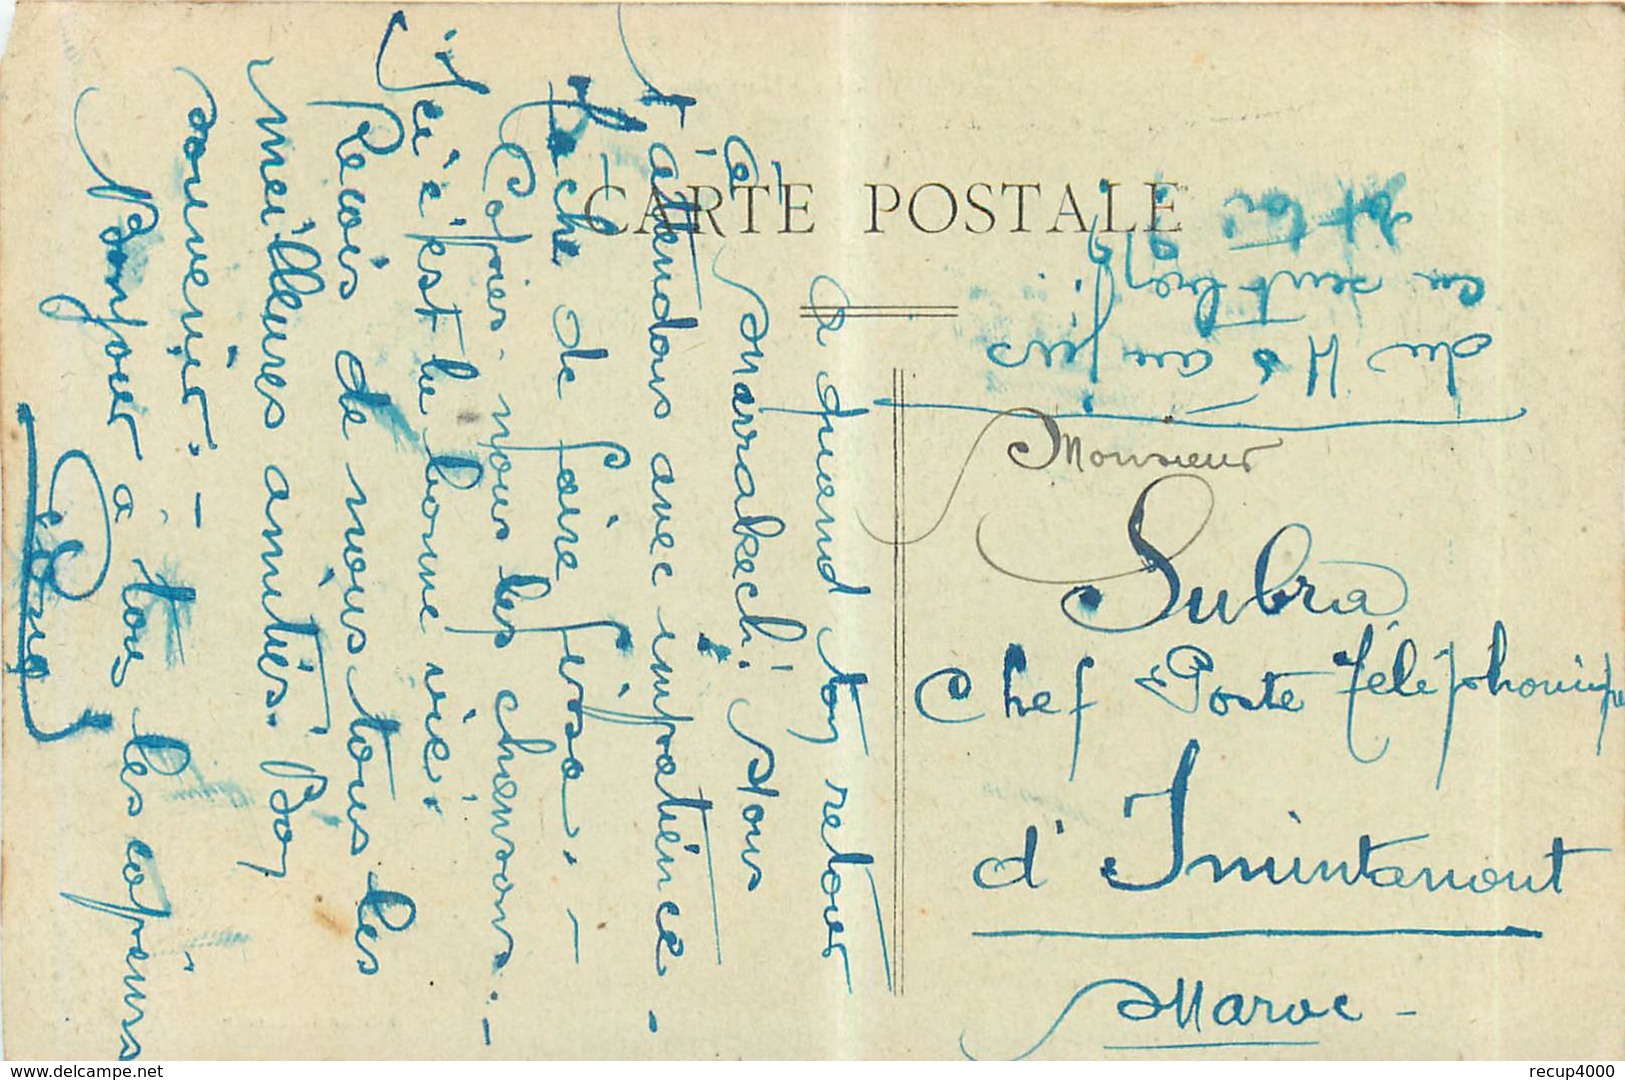 CARTE POSTALE
A quand ton retour
à Marrakech. Nous
t'attendons avec impatience -
Tâche de faire fissa. -
Copies nous les chansons. -
Ici c'est la bonne vie.
Reçois de nous tous les
meilleures amitiés. Bon
souvenir. -
Bonjour à tous les copains
du 
en 
Monsieur
Subra
Chef Poste Téléphonique
d'Imintanout
Maroc -
recup4000